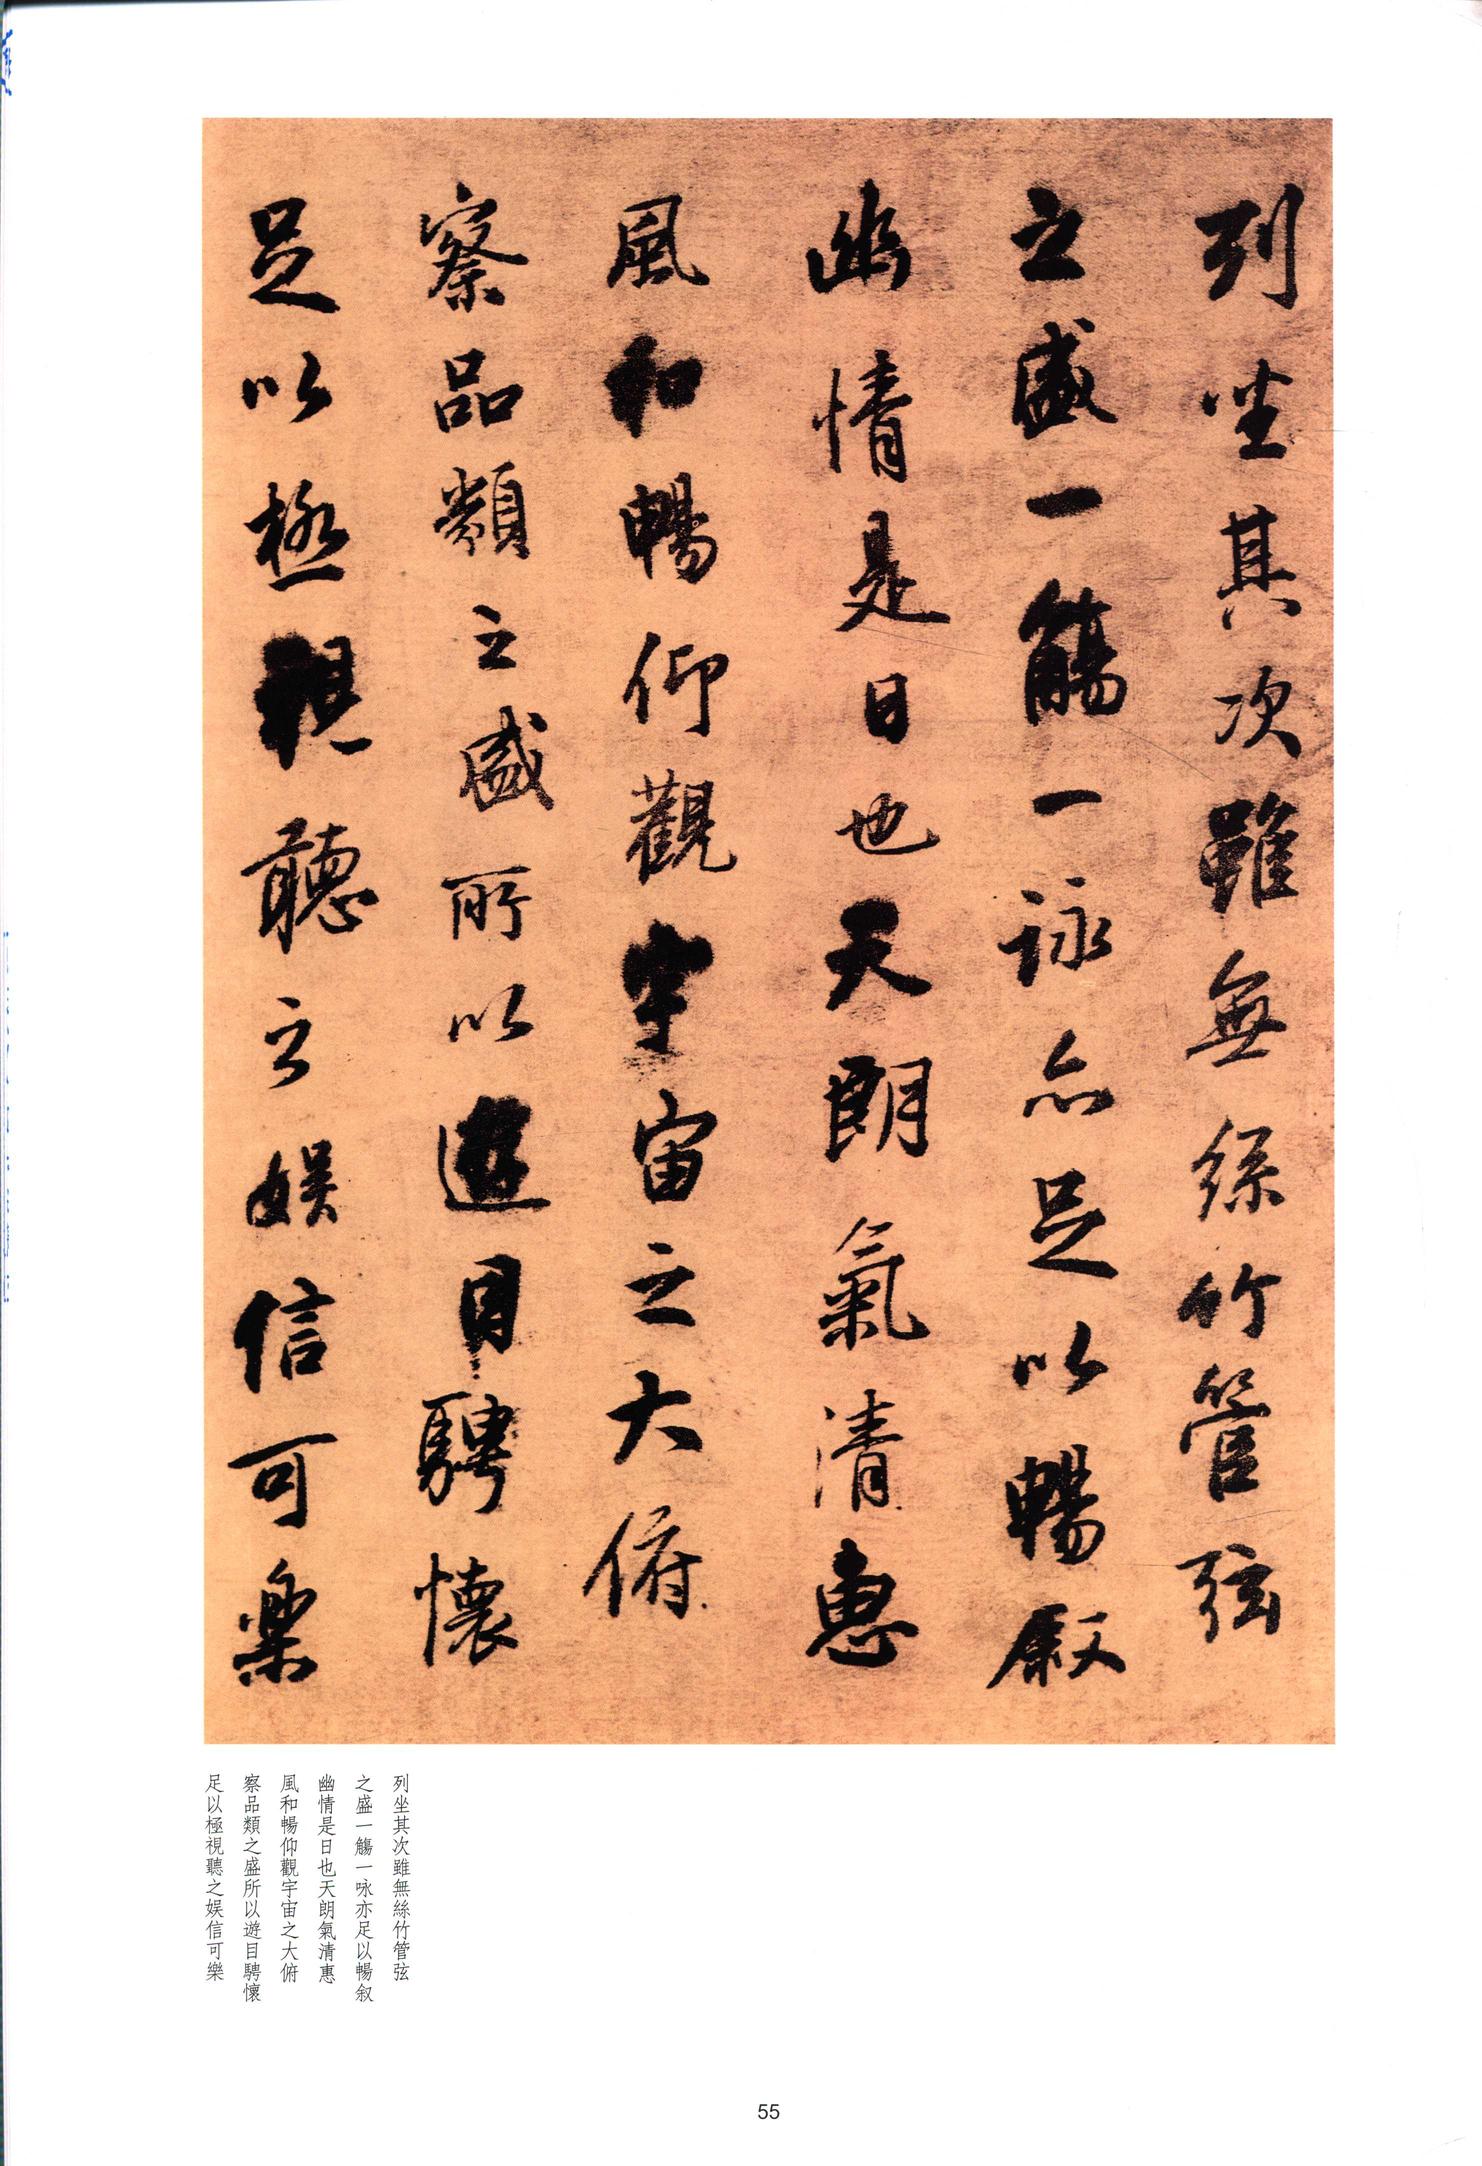 列坐其次雖無絲竹管弦
之盛一觴一詠亦足以暢敘
幽情是日也天朗氣清惠
風和暢仰觀宇宙之大俯
察品類之盛所以遊目騁懷
足以極視聽之娛信可樂
列坐其次雖無絲竹管弦
之盛一觴一咏亦足以暢叙
幽情是日也天朗氣清惠
風和暢仰觀宇宙之大俯
察品類之盛所以遊目騁懷
足以極視聽之娛信可樂
55